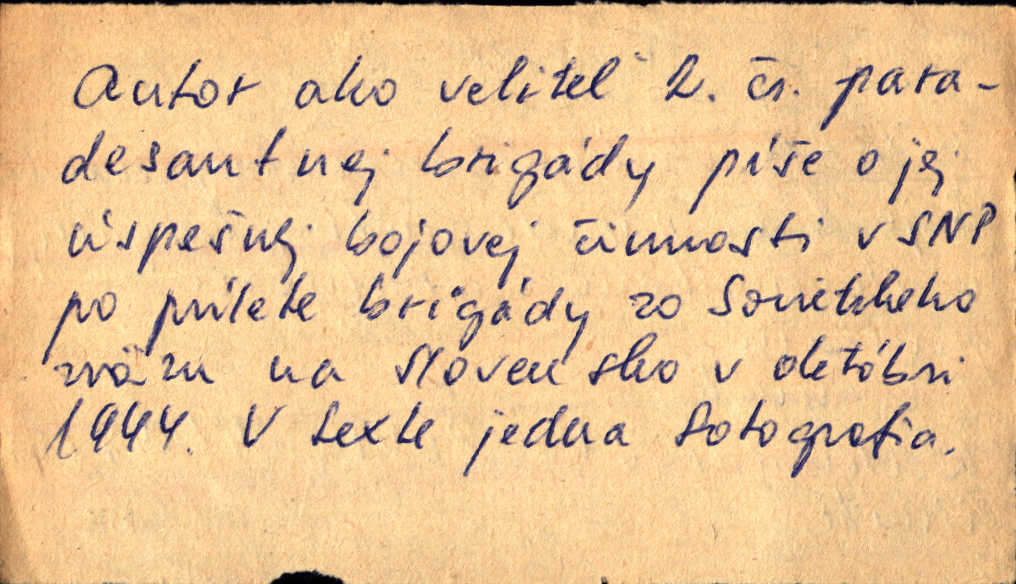 Autor ako veliteľ 2. čs. para-
desantnej brigády píše o jej
úspešnej bojovej činnosti v SNP
po prílete brigády zo Sovietskeho
zväzu na Slovensko v októbri
1944. V texte jedna fotografia.